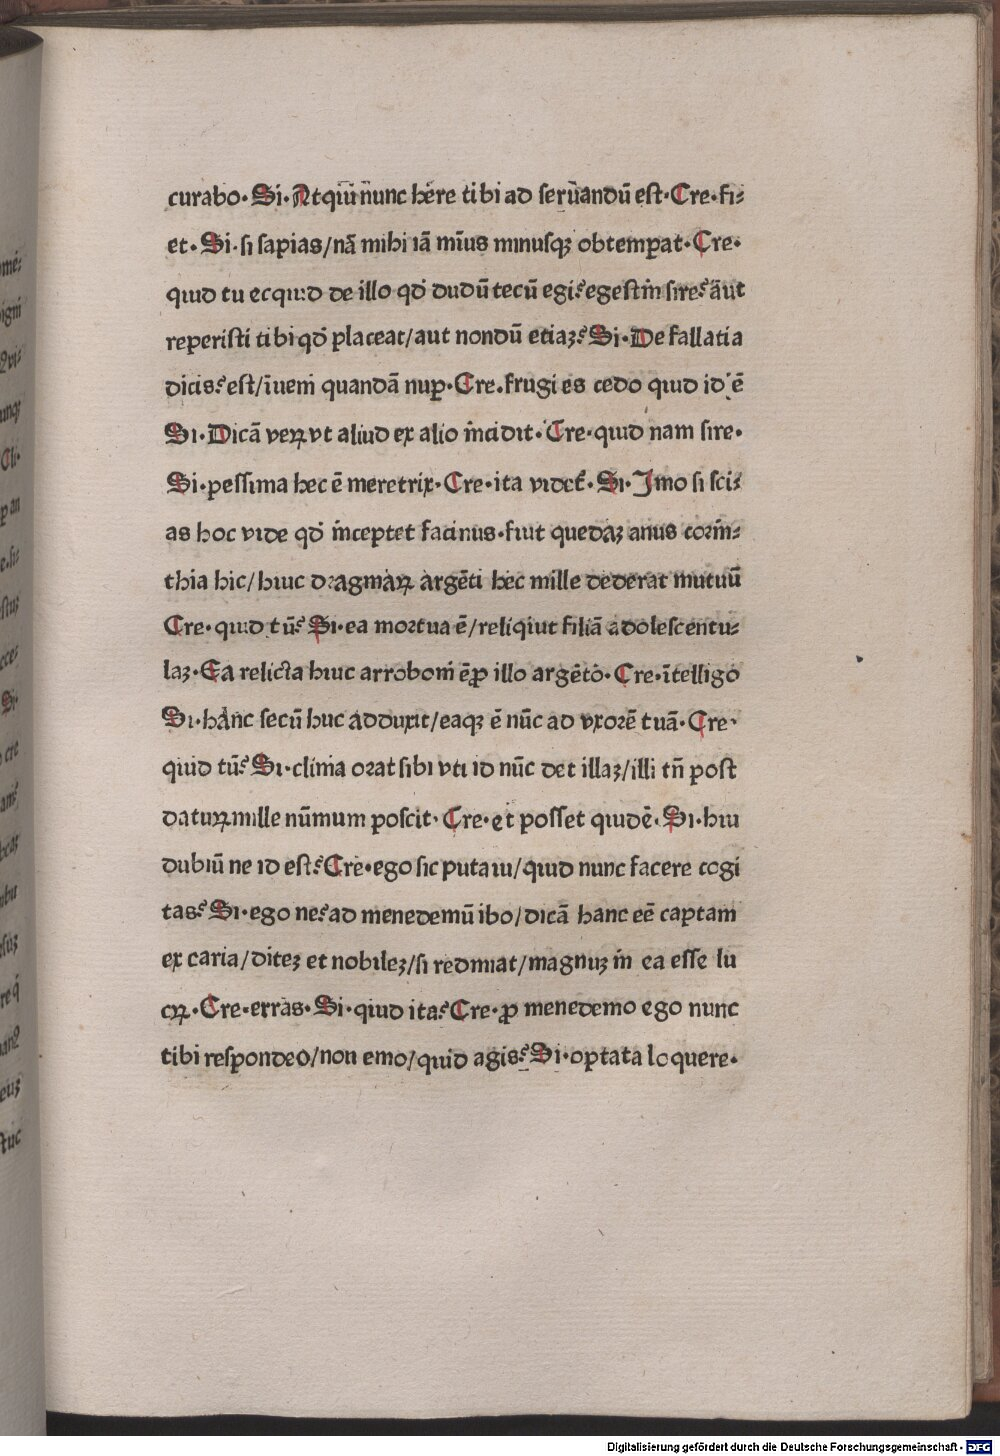 curabo·Si·Atqui nunc here tibi ad seruandū est·Cre·fi⸗
et·Si·si sapias/nā mihi iā mīus minusqꝫ obtemꝑat·Cre·
quid tu ecquid de illo qđ dudū tecū egi?egestin sire?aūt
reperisti tibi qđ placeat/aut nondū etiaꝫ?Si·De fallatia
dicis?est/īueni quandā nuꝑ·Cre.frugi es cedo quid id ē
Si·Dicā veꝝ vt aliud ex alio incidit·Cre·quid nam sire·
Si·pessima hec ē meretrix·Cre·ita videt᷑·Si·Imo si sci⸗
as hoc vide qđ inceptet facinus·fiut quedaꝫ anus corin⸗
thia hic/huic dragmaꝝ argēti hec mille dederat mutuū
Cre·quid tū?Si·ea mortua ē/reliqiut filiā adolescentu⸗
laꝫ·Ea relicta huic arroboni ē ꝓ illo argēto·Cre·ītelligo
Si·hanc secū huc adduxit/eaqꝫ ē nūc ad vxorē tuā·Cre·
quid tū?Si·clinia orat sibi vti id nūc det illaꝫ/illi tn̄ post
datuꝝ mille nūmum poscit·Cre·et posset quidē·Si·hiu
dubiū ne id est?Cre·ego sic putaui/quid nunc facere cogi
tas?Si·ego ne?ad menedemū ibo/dicā hanc eē captam
ex caria/diteꝫ et nobileꝫ/si redimat/magnuꝫ in ea esse lu
cꝝ·Cre·erras·Si·quid ita?Cre·ꝓ menedemo ego nunc
tibi respondeo/non emo/quid agis?Si·optata loquere·
Digitalisierung gefördert durch die Deutsche Forschungsgemeinschaft · DFG